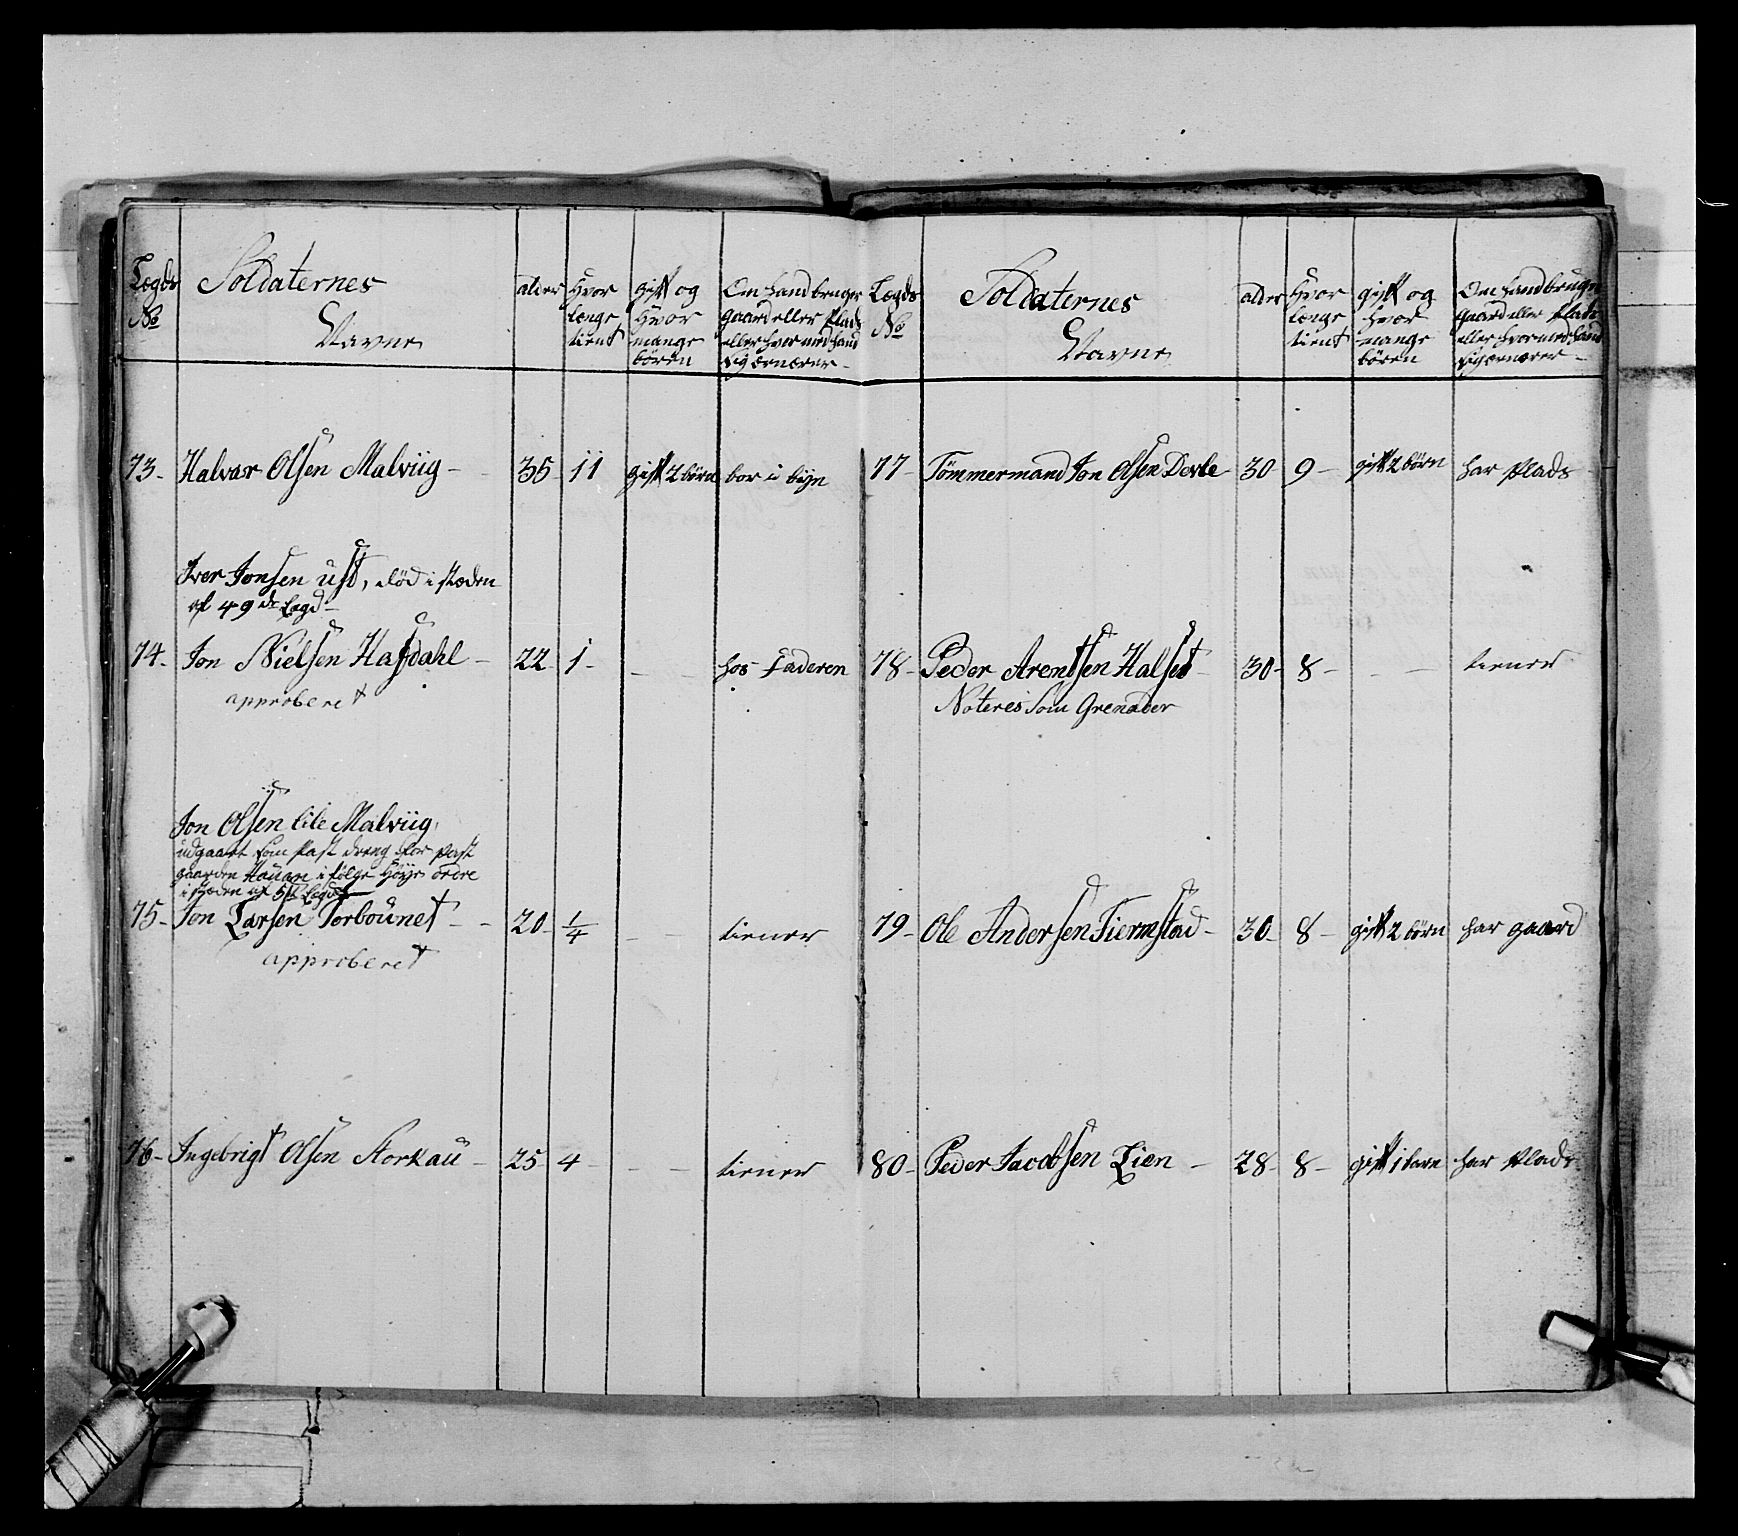 Lægds
No
Soldaternes
Navne
alder
Hvor
længe
tient
gift og
Hvor
mange
bören
Om hand bruger
gaard eller Plads
eller hvormed hand
sig ernærer -
73- Halvar Olsen Malviig - 35 11 gift 2 börn bor i byn
Iver Jonsen Ust, död i stæden
af 49de Legd -
74- Jon Nielsen Hafdahl - 22- 1- - - hos Faderen
approberet
Jon Olsen lile Malviig,
udgaaet som Post dreng for Post
gaarden Hauan i fölge Höye ordre
i stæden af Legd
75- Jon Larsen Torbounet - - 20- 1/4 - - tiener
approberet
76- Ingebrigt Olsen Storkau - 25 4 - - - tiener
Lægds
No
Soldaternes
Navne
alder
Hvor
længe
tient
gift og
hvor
mange
bören
Om hand bruger
gaard eller Plads
eller hvormed hand
sig ernærer -
77- Tömmermand Jon Olsen Devle 30 9- gift 2 börn har Plads
78- Peder Arentsen Halset - 30- 8- - - tiener
Noteres Som Grenader
79- Ole Andersen Fiermstad - 30- 8- gift 2 börn har gaard
80- Peder Jacobsen Lien - 28- 8- gift 1 barn har Plads